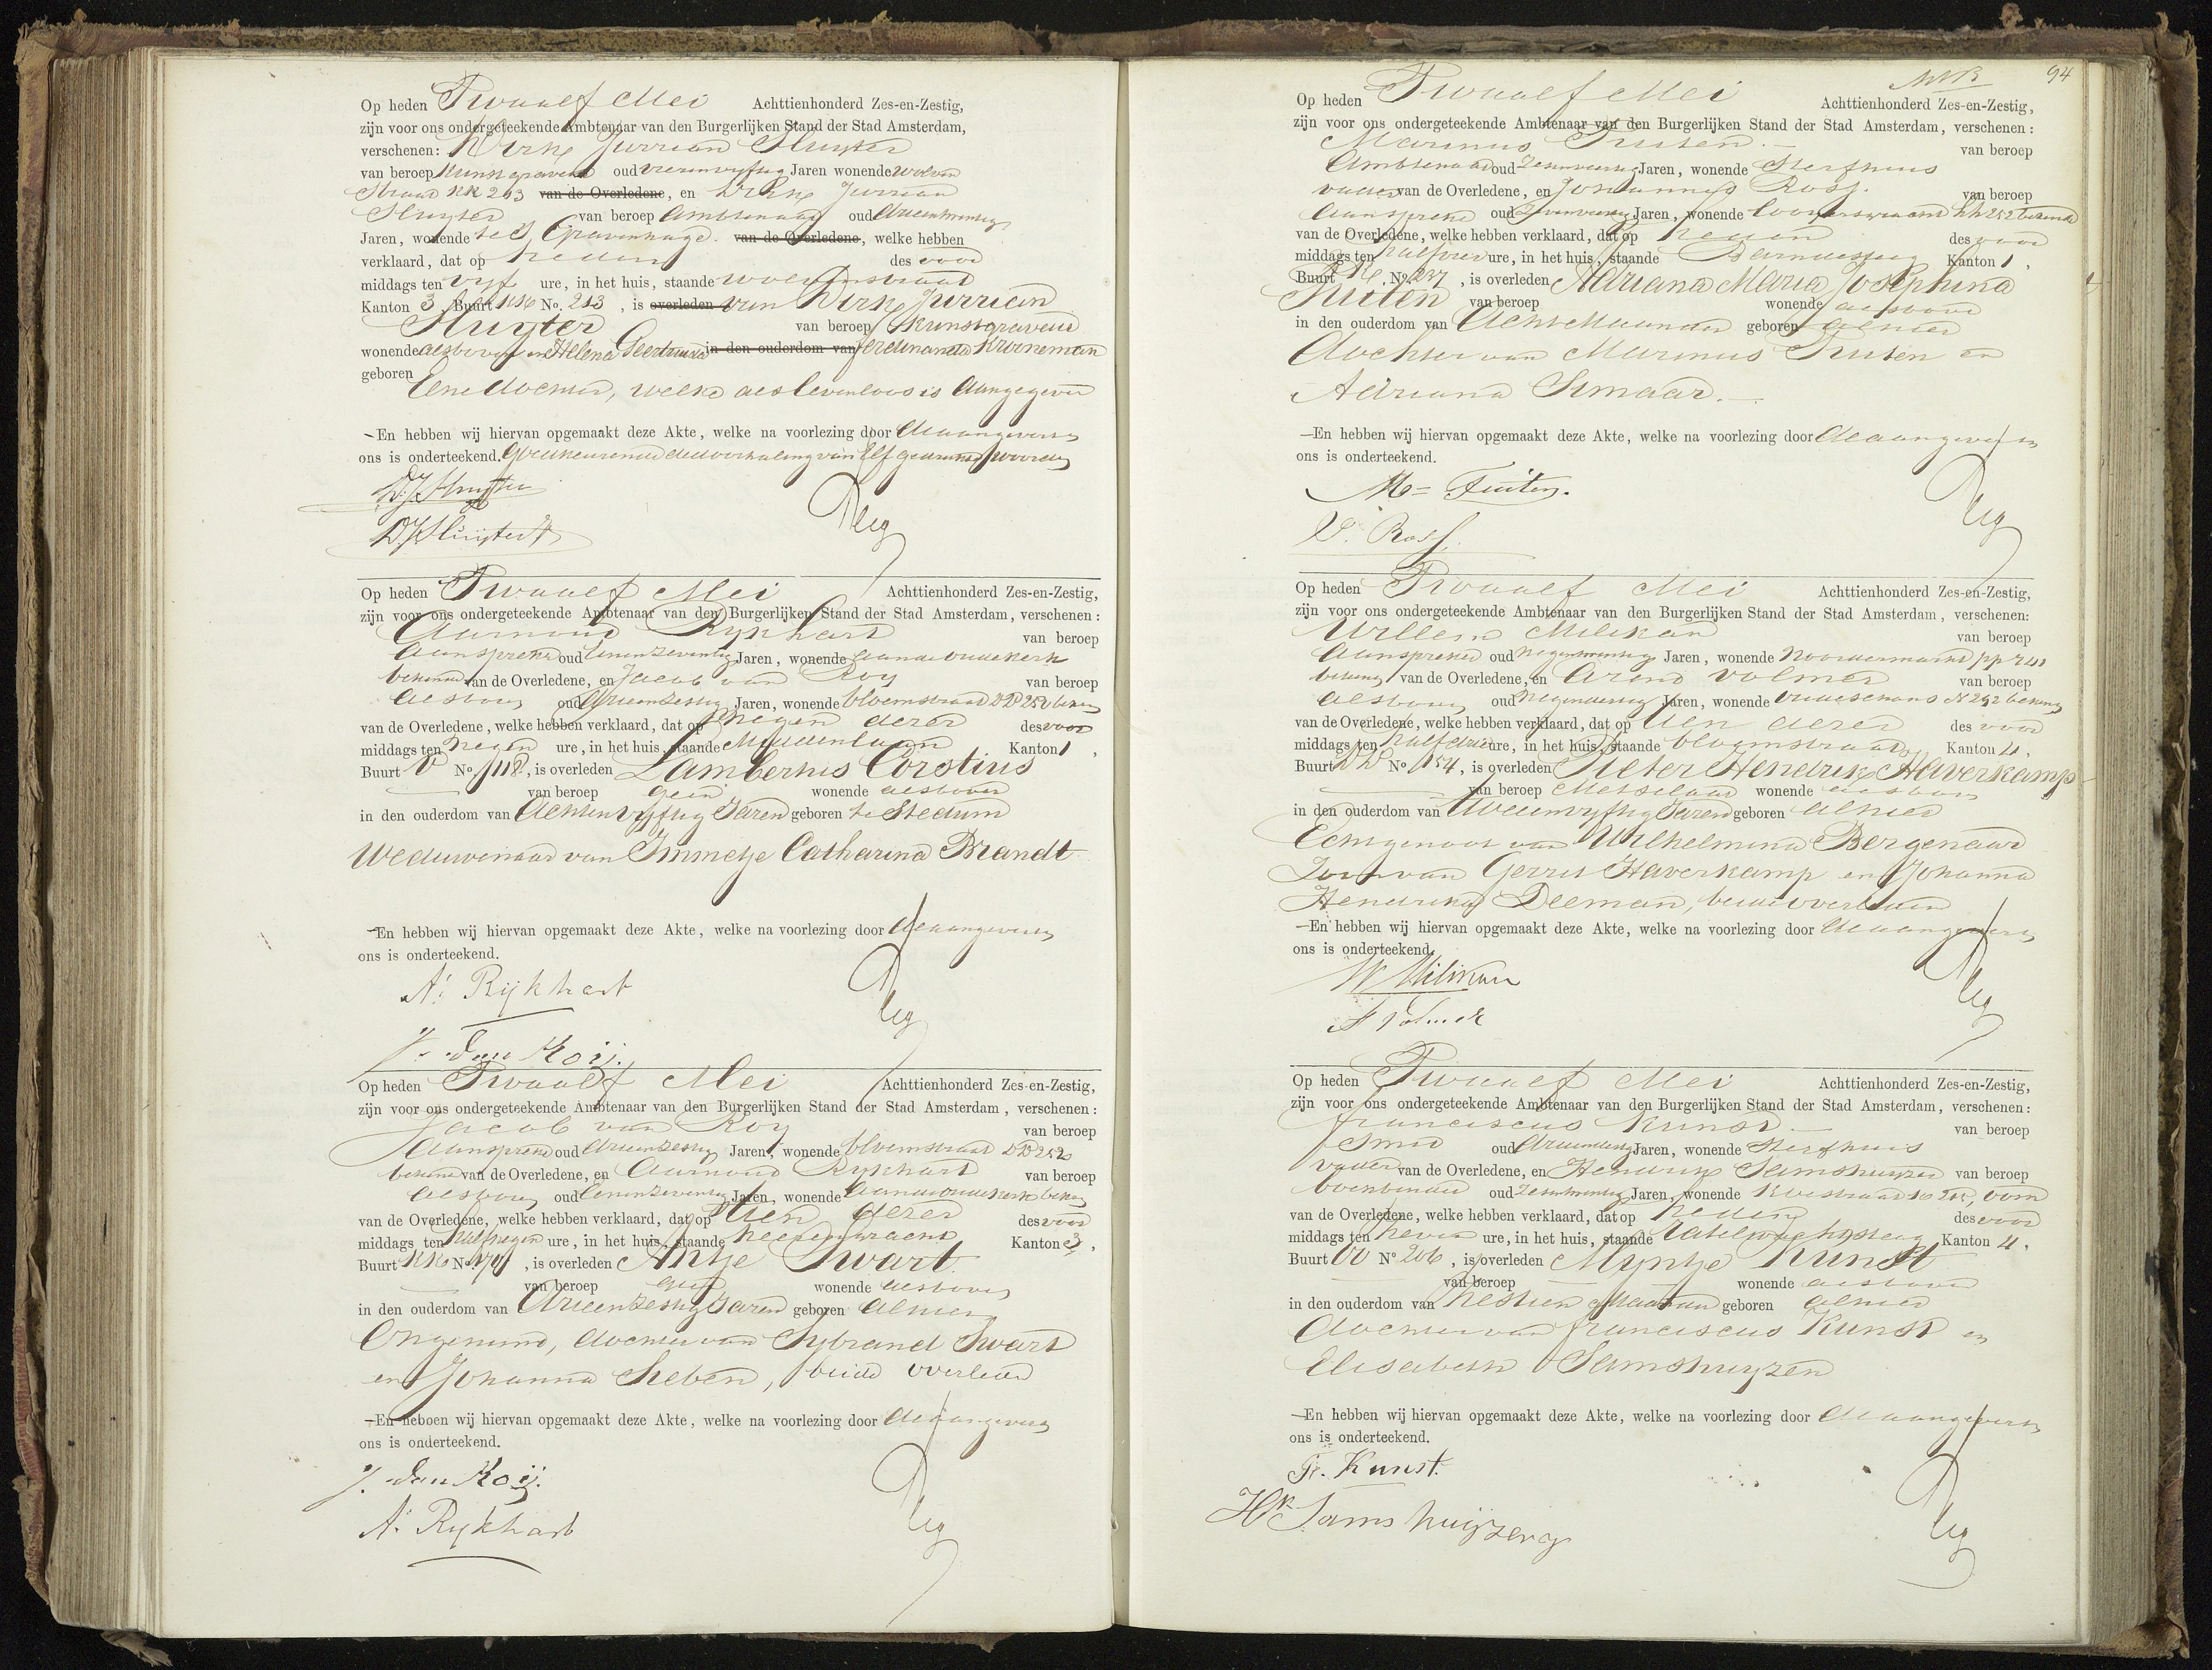 Op heden Twaalf Mei Achttienhonderd Zes-en-Zestig,
zijn voor ons ondergeteekende Ambtenaar van den Burgerlijken Stand der Stad Amsterdam,
verschenen: Dirk Jurrian Sluyter
van beroep Kunstgraveur oud vierenvyftig Jaren wonende Wolven
Straat KK 213 van de Overledene, en Dirk Jurrian
Sluyter van beroep Ambtenaar oud drieentwintig
Jaren, wonende te s Gravenhage van de Overledene, welke hebben
verklaard, dat op heden des voor
middags ten vyf ure, in het huis, staande Wolvenstraat
Kanton 3 Buurt KK No. 213, is overleden van Dirk Jurrian
Sluyter van beroep Kunstgraveur
wonende alsboven en Helena Geertruida in den ouderdom van Ferdinanda Kroneman
geboren
Eene dochter, welke als levenloos is aangegeven
En hebben wij hiervan opgemaakt deze Akte, welke na voorlezing door de aangevers en
ons is onderteekend. Goedkeurende de doorhaling van elf gedrukte woorden
D.J. Sluyter
D.J. Sluijter Jr
Op heden Twaalf Mei Achttienhonderd Zes-en-Zestig,
zijn voor ons ondergeteekende Ambtenaar van den Burgerlijken Stand der Stad Amsterdam, verschenen:
Aarnoud Rykhart van beroep
Aanspreker oud eenenzeventig Jaren, wonende aan de Oudekerk
bekende van de Overledene, en Jacob van Roy van beroep
alsboven oud drieenzestig Jaren, wonende Bloemstraat DD 252 beken
van de Overledene, welke hebben verklaard, dat op negen dezer des voor
middags ten negen ure, in het huis, staande Muiderlaan Kanton 1,
Buurt V No 118, is overleden Lambertus Corstius
van beroep geen wonende alsboven
in den ouderdom van Achtenvyftig Jaren geboren te Stedum
Weduwenaar van Immetje Catharina Brandt
En hebben wij hiervan opgemaakt deze Akte, welke na voorlezing door de aangevers en
ons is onderteekend.
A. Rijkhart
J. van Roij.
Op heden Twaalf Mei Achttienhonderd Zes-en-Zestig,
zijn voor ons ondergeteekende Ambtenaar van den Burgerlijken Stand der Stad Amsterdam, verschenen:
Jacob van Roy van beroep
Aanspreker oud drieenzestig Jaren, wonende Bloemstraat DD 252
bekende van de Overledene, en Aarnoud Rykhart van beroep
alsboven oud eenenzeventig Jaren, wonende aan de Oudekerk beken
van de Overledene, welke hebben verklaard, dat op tien dezer des voor
middags ten half negen ure, in het huis, staande Heerengracht Kanton 3,
Buurt KK No. , is overleden Antje Swart
van beroep geen wonende alsboven
in den ouderdom van drieenzestig Jaren geboren alhier
Ongehuwd, dochter van Sybrand Swart
en Johanna Sieben, beide overleden
En hebben wij hiervan opgemaakt deze Akte, welke na voorlezing door de aangevers en
ons is onderteekend.
J. van Roij.
A. Rykhart
94
Op heden Twaalf Mei Achttienhonderd Zes-en-Zestig,
zijn voor ons ondergeteekende Ambtenaar van den Burgerlijken Stand der Stad Amsterdam, verschenen:
Marinus Fuiten van beroep
Ambtenaar oud zesenveertig Jaren, wonende Sterfhuis
vader van de Overledene, en Johannes Ross. van beroep
Aanspreker oud zevenveertig Jaren, wonende Looyersgracht hh 252 bekende
van de Overledene, welke hebben verklaard, dat op heden des voor
middags ten half vier ure, in het huis, staande Barndesteeg Kanton 1,
Buurt No. 237, is overleden Adriana Maria Josephina
Fuiten van beroep wonende alsboven
in den ouderdom van Acht Maanden geboren alhier
dochter van Marinus Fuiten en
Adriana Simaar.
En hebben wij hiervan opgemaakt deze Akte, welke na voorlezing door de aangevers en
ons is onderteekend.
M= Fuiten.
J. Ross
Op heden Twaalf Mei Achttienhonderd Zes-en-Zestig,
zijn voor ons ondergeteekende Ambtenaar van den Burgerlijken Stand der Stad Amsterdam, verschenen:
Willem Milikan van beroep
Aanspreker oud negentwintig Jaren, wonende Noordermarkt pp
bekende van de Overledene, en Arend Volmer van beroep
alsboven oud negendertig Jaren, wonende Oudeschans N 292 bekende
van de Overledene, welke hebben verklaard, dat op tien dezer des voor
middags ten half drie ure, in het huis, staande Bloemstraat Kanton 4.
Buurt DD No 154, is overleden Pieter Hendrik Haverkamp
van beroep Metselaar wonende alsboven
in den ouderdom van tweeenvyftig Jaren geboren alhier
Echtgenoot van Wilhelmina Bergenaar
Zoon van Gerrit Haverkamp en Johanna
Hendrika Deeman, beide overleden
En hebben wij hiervan opgemaakt deze Akte, welke na voorlezing door de aangevers en
ons is onderteekend.
W Milikan
A Volmer
Op heden Twaalf Mei Achttienhonderd Zes-en-Zestig,
zijn voor ons ondergeteekende Ambtenaar van den Burgerlijken Stand der Stad Amsterdam, verschenen:
Franciscus Kunst van beroep
Smid oud drieendertig Jaren, wonende Sterfhuis
vader van de Overledene, en Hendrik Samshuyzen van beroep
boekbinder oud zesentwintig Jaren, wonende oom
van de Overledene, welke hebben verklaard, dat op heden des voor
middags ten zeven ure, in het huis, staande Kanton 4.
Buurt No 206, is overleden Myntje Kunst
van beroep wonende alsboven
in den ouderdom van zestien Maanden geboren alhier
dochter van Franciscus Kunst en
Elisabeth Samshuyzen
En hebben wij hiervan opgemaakt deze Akte, welke na voorlezing door de aangevers en
ons is onderteekend.
Fr. Kunst.
Hk Samshuijzen